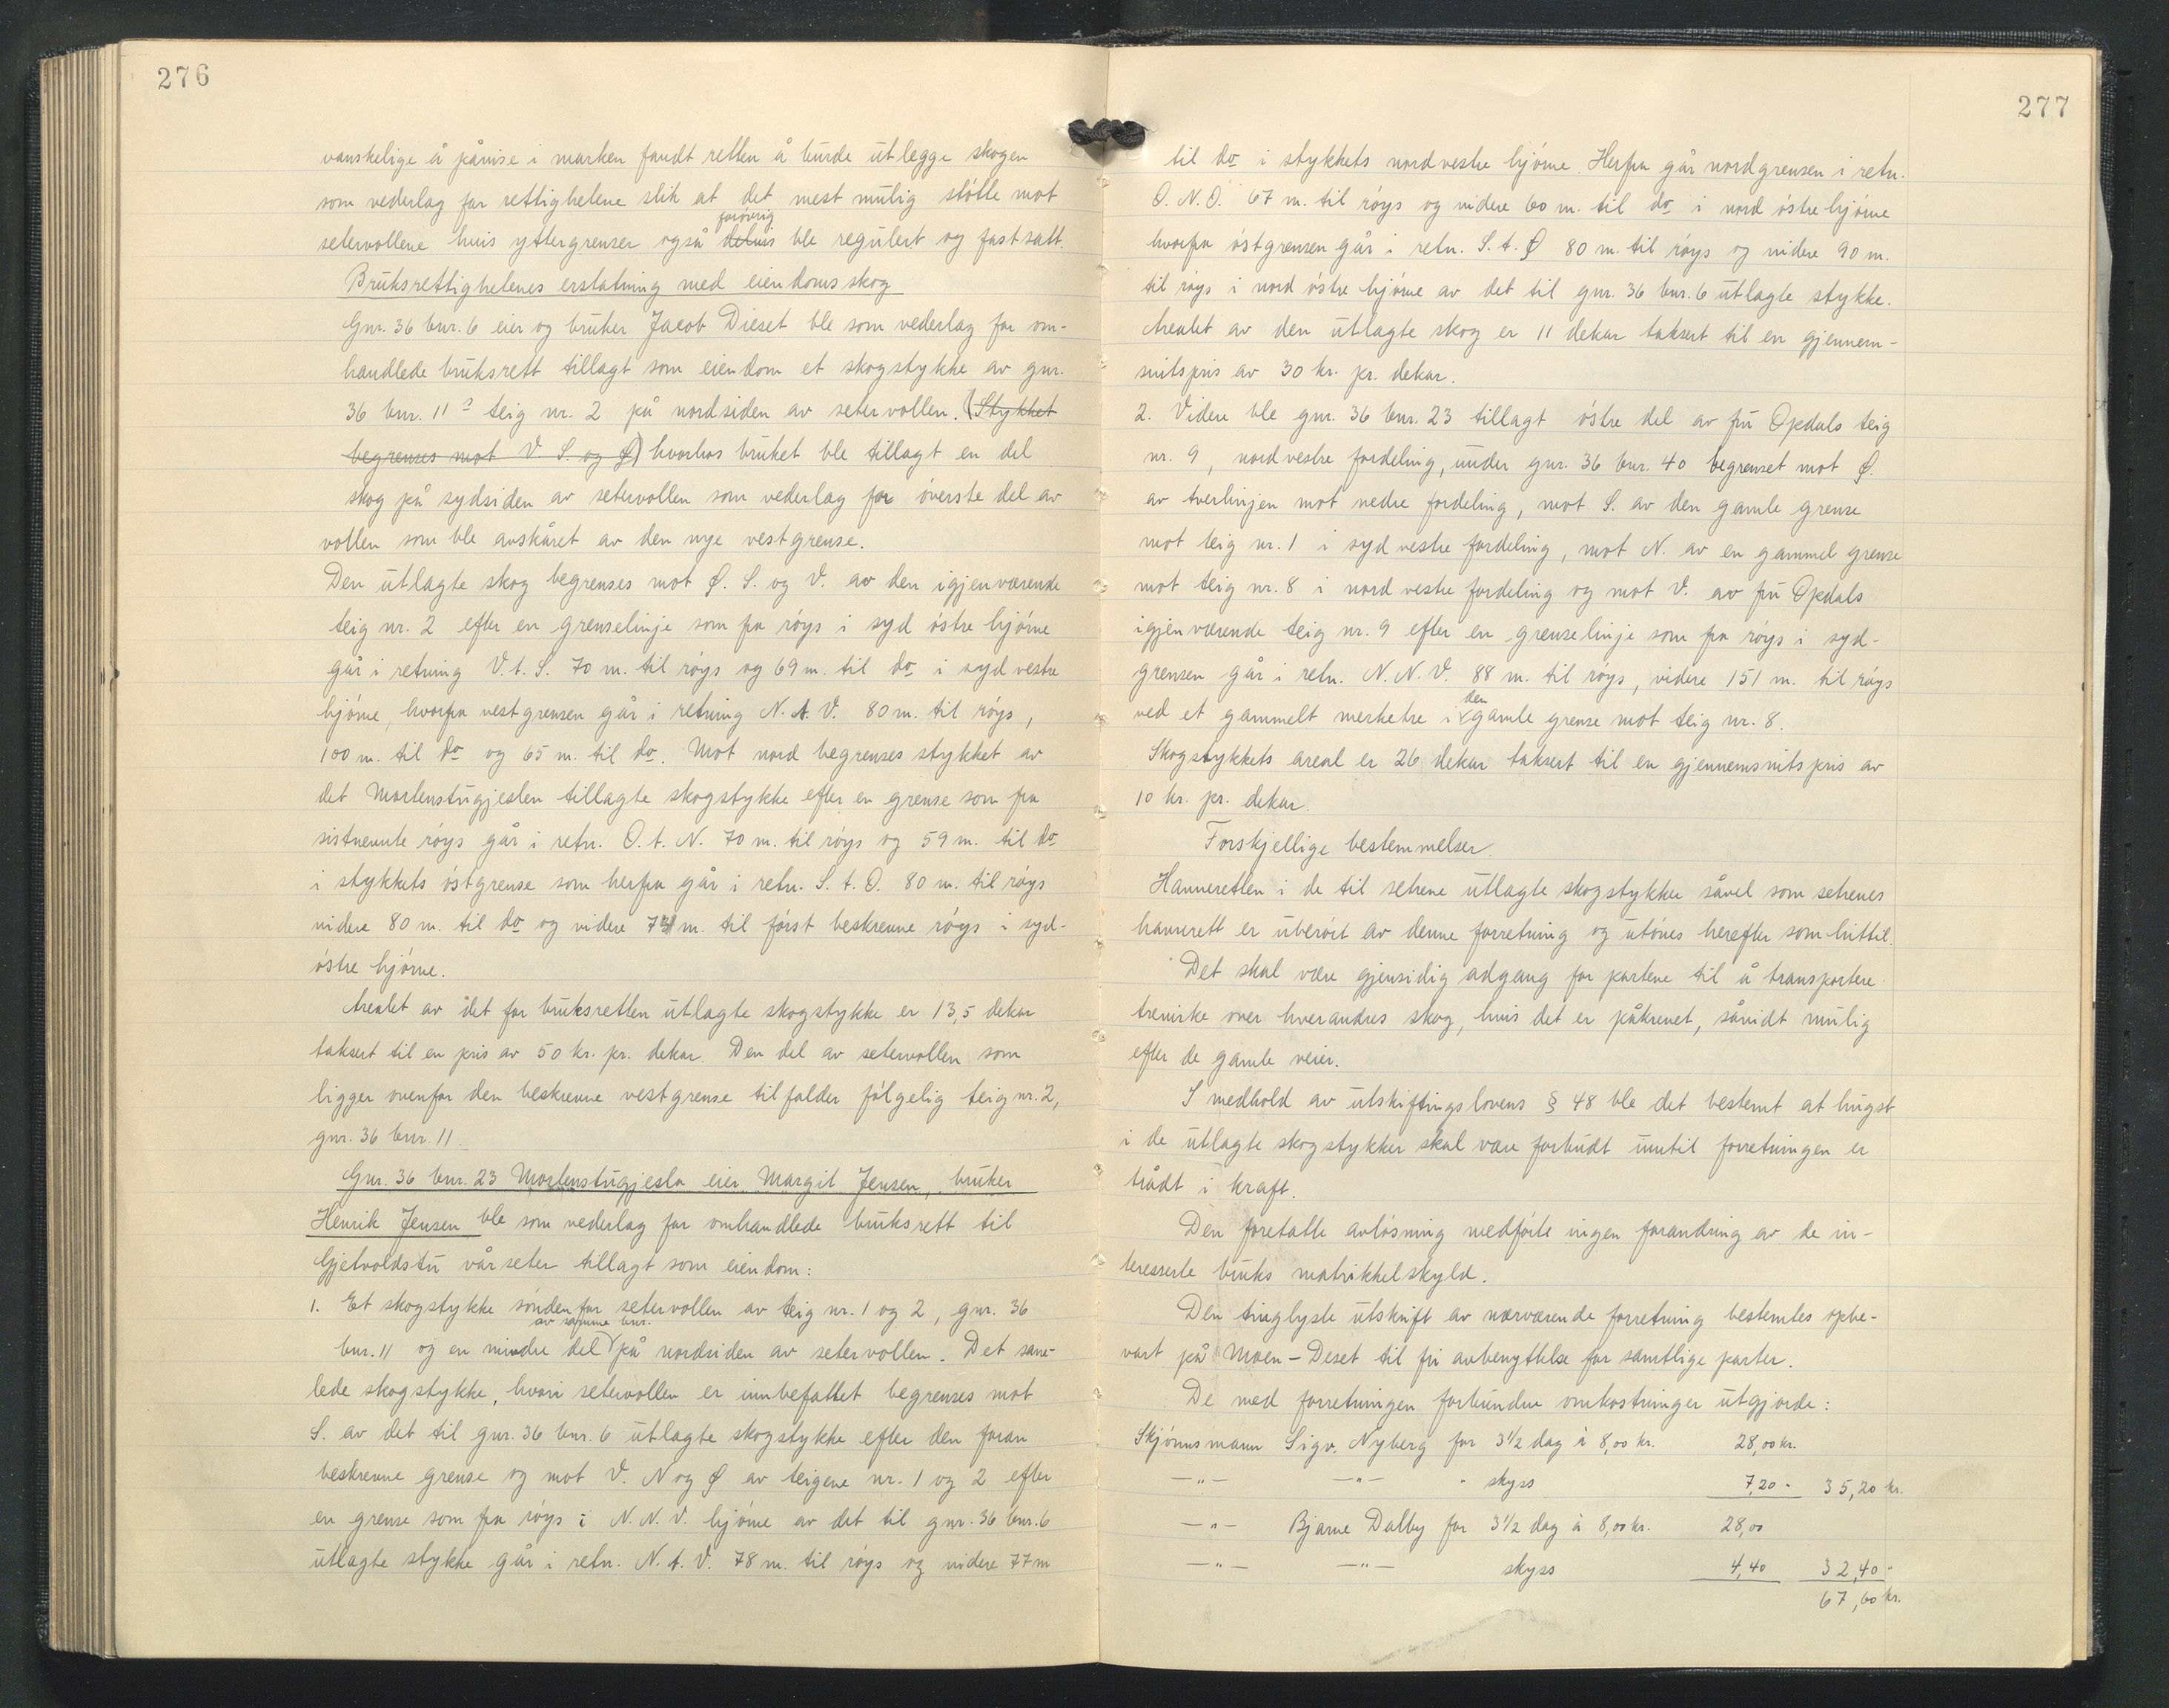 276
vanskelige å påvise i marken fandt retten å burde utlegge skogen
som vederlag for rettighetene slik at det mest mulig støtte mot
forøvrig
setervollene hvis yttergrenser også delvis ble regulert og fastsatt.
Bruksrettighetenes erstatning med eiendomsskog
Gnr. 36 bnr. 6 eier og bruker Jacob Dieset ble som vederlag for om-
handlede bruksrett tillagt som eiendom et skogstykke av gnr.
36 bnr. 11 teig nr. 2 på nordsiden av setervollen. (Stykket
begrenses mot V. S. og Ø) hvorhos bruket ble tillagt en del
skog på sydsiden av setervollen som vederlag for øverste del av
vollen som ble avskåret av den nye vestgrense.
Den utlagte skog begrenses mot Ø. S. og V. av den igjenværende
teig nr. 2 efter en grenselinje som fra røys i syd østre hjørne
går i retning V. t. S. 70 m. til røys og 69 m. til do i syd vestre
hjørne, hvorfra vestgrensen går i retning N. t. V. 80 m. til røys,
100 m. til do og 65 m. til do. Mot nord begrenses stykket av
det Mortenstugjeslen tillagte skogstykke efter en grense som fra
sistnevnte røys går i retn. O. t. N. 70 m. til røys og 59 m. til do
i stykkets østgrense som herfra går i retn. S. t. O. 80 m. til røys
videre 80 m. til do og videre 74 m. til først beskrevne røys i syd-
østre hjørne.
Arealet av det for bruksretten utlagte skogstykke er 13,5 dekar
taksert til en pris av 50 kr. pr. dekar. Den del av setervollen som
ligger ovenfor den beskrevne vestgrense tilfalder følgelig teig nr. 2,
gnr. 36 bnr. 11.
Gnr. 36 bnr. 23 Mortenstugjesla eier Margit Jensen, bruker
Henrik Jensen ble som vederlag for omhandlede bruksrett til
Gjetvoldstu vårseter tillagt som eiendom:
1. Et skogstykke søndenfor setervollen av teig nr. 1 og 2, gnr. 36
av samme bnr.
bnr. 11 og en mindre del på nordsiden av setervollen. Det sam-
lede skogstykke, hvori setervollen er innbefattet begrenses mot
S. av det til gnr. 36 bnr. 6 utlagte skogstykke efter den foran
beskrevne grense og mot V. N og Ø av teigene nr. 1 og 2 efter
en grense som fra røys i N. N. V. hjørne av det til gnr. 36 bnr. 6
utlagte stykke går i retn. N. t. V. 78 m. til røys og videre 77 m
277
til do i stykkets nordvestre hjørne. Herfra går nordgrensen i retn.
O. N. O. 67 m. til røys og videre 60 m. til do i nord østre hjørne
hvorfra østgrensen går i retn. S. t. Ø 80 m. til røys og videre 90 m.
til røys i nord østre hjørne av det til gnr. 36 bnr. 6 utlagte stykke.
Arealet av den utlagte skog er 11 dekar taksert til en gjennem-
snitspris av 30 kr. pr. dekar.
2. Videre ble gnr. 36 bnr. 23 tillagt østre del av fru Opdals teig
nr. 9, nordvestre fordeling, under gnr. 36 bnr. 40 begrenset mot Ø.
av tverlinjen mot nedre fordeling, mot S. av den gamle grense
mot teig nr. 1 i syd vestre fordeling, mot N. av en gammel grense
mot teig nr. 8 i nord vestre fordeling og mot V. av fru Opdals
igjenværende teig nr. 9 efter en grenselinje som fra røys i syd-
grensen går i retn. N. N. V. 88 m. til røys, videre 151 m. til røys
den
ved et gammelt merketre i gamle grense mot teig nr. 8.
Skogstykkets areal er 26 dekar taksert til en gjennemsnitspris av
10 kr. pr. dekar.
Forskjellige bestemmelser.
Havneretten i de til setrene utlagte skogstykker såvel som setrenes
havnerett er uberørt av denne forretning og utøves herefter som hittil.
Det skal være gjensidig adgang for partene til å transportere
trevirke over hverandres skog, hvis det er påkrevet, såvidt mulig
efter de gamle veier.
I medhold av utskiftingslovens § 48 ble det bestemt at hugst
i de utlagte skogstykker skal være forbudt inntil forretningen er
trådt i kraft.
Den foretatte avløsning medførte ingen forandring av de in-
teresserte bruks matrikkelskyld.
Den tinglyste utskrift av nærværende forretning bestemtes opbe-
vart på Moen - Deset til fri avbenyttelse for samtlige parter.
De med forretningen forbundne omkostninger utgjorde:
Skjønnsmann Sigv. Nyberg for 3 1/2 dag à 8,00 kr. 28,00 kr.
-"- -"- " skyss 7,20 - 35,20 kr.
-"- Bjarne Dalby for 3 1/2 dag à 8,00 kr. 28,00
-"- -"- skyss 4,40 32,40 -
67,60 kr.